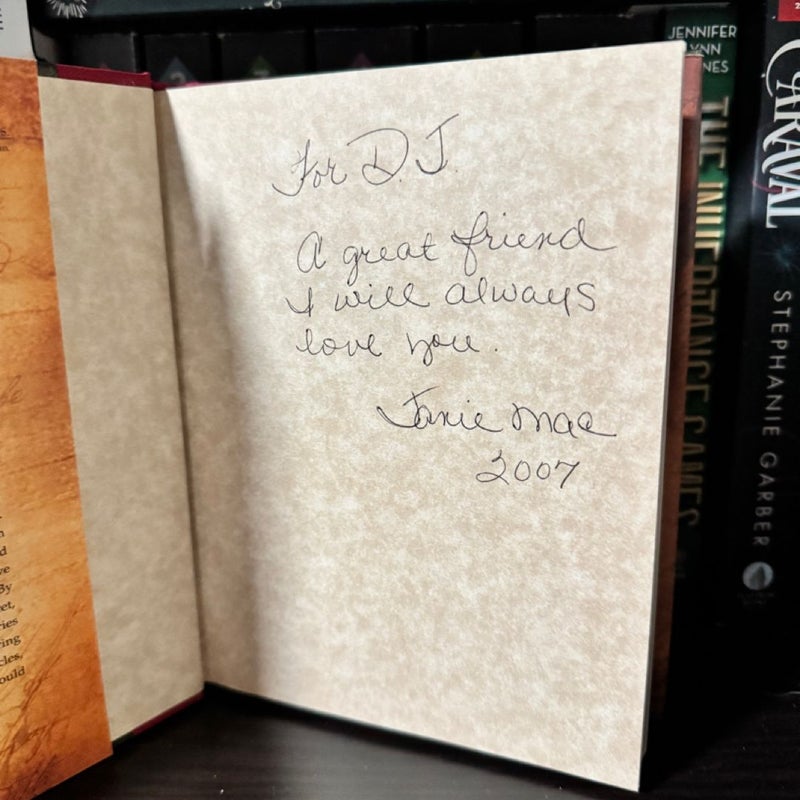 For D.J.
A great friend
I will always
love you.
Janie Mac
2007
JENNIFER
LYNN
THE INHERITANCE GAMES
CARAVAL
STEPHANIE GARBER
By
ries
ring
cles,
ould